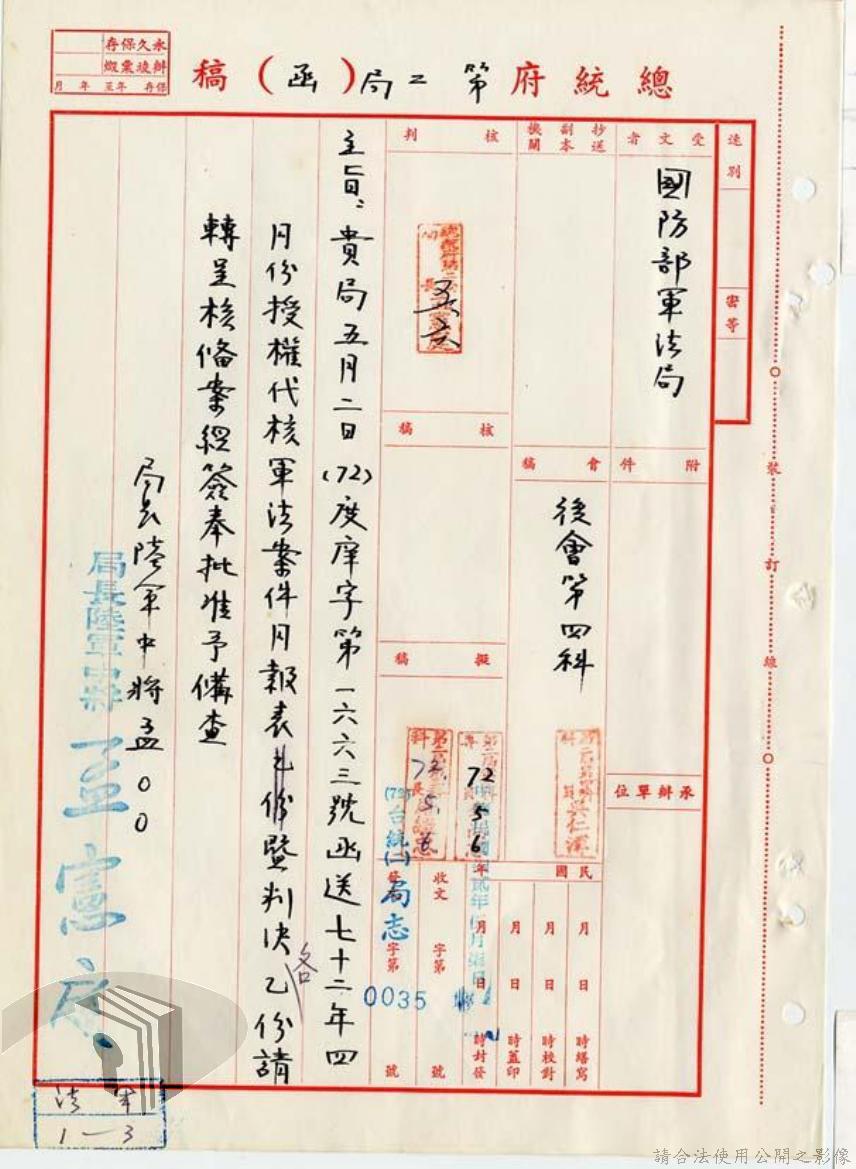 總統府第二局(函)稿
永久保存
辦後彙繳
保存 年至 年 月
速別
密等
受文者
國防部軍法局
抄送副本機關
核判
附件
會稿
後會第四科
核稿
擬稿
承辦單位
五六
72 5 6
主旨：貴局五月二日(72)度庠字第一六六三號函送七十二年四
月份授權代核軍法案件月報表乙份暨判決乙份請
各
轉呈核備案經簽奉批准予備查
局長陸軍中將孟00
局長陸軍中將孟憲庭
民國
年 月 日 時封發
月 日 時蓋印
月 日 時校對
月 日 時繕寫
收文 字第 號
發文 字第 號
(72)台統(二)局志
0035
裝訂線
1—3
請合法使用公開之影像